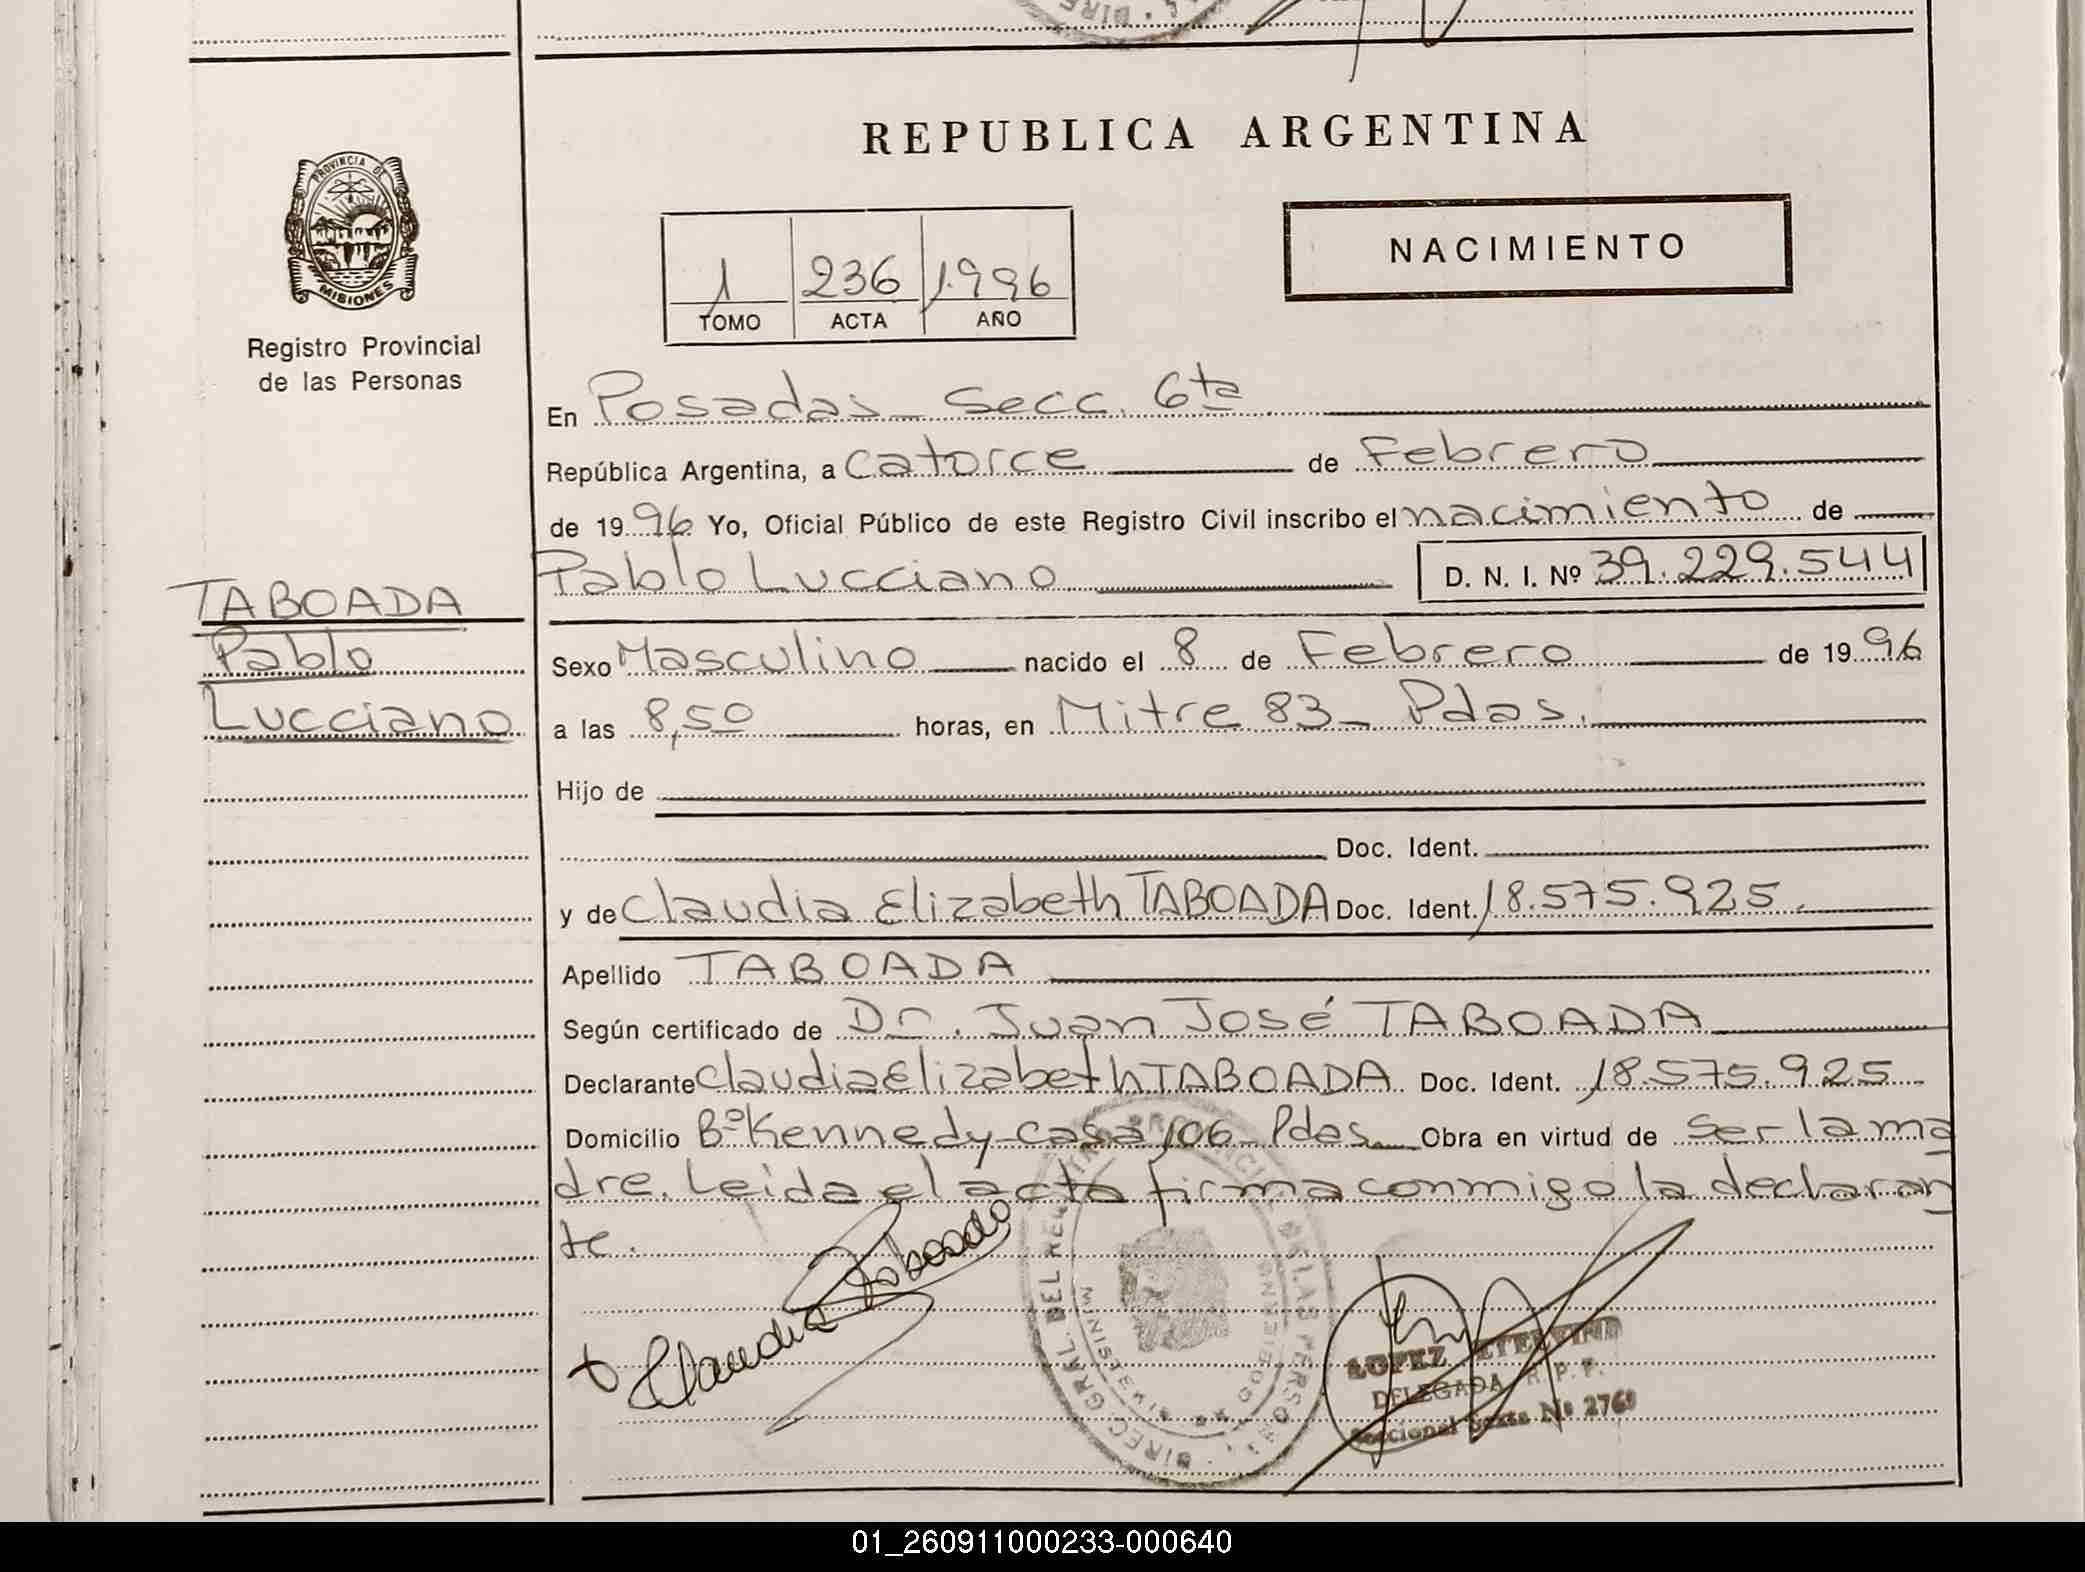 REPUBLICA ARGENTINA
PROVINCIA DE
MISIONES
Registro Provincial
de las Personas
NACIMIENTO
1 236 1.996
TOMO ACTA AÑO
En Posadas - Secc. 6ta
República Argentina, a catorce de Febrero
de 1996 Yo, Oficial Público de este Registro Civil inscribo el nacimiento de
Pablo Lucciano D. N. I. Nº 39.229.544
TABOADA
Pablo
Lucciano
Sexo Masculino nacido el 8 de Febrero de 1996
a las 8,50 horas, en Mitre 83 - Pdas.
Hijo de
Doc. Ident.
y de Claudia Elizabeth TABOADA Doc. Ident. 18.575.925.
Apellido TABOADA
Según certificado de Dr. Juan José TABOADA
Declarante Claudia Elizabeth TABOADA Doc. Ident. 18.575.925
Domicilio Bº Kennedy - casa 106 - Pdas. Obra en virtud de ser la ma
dre. Leida el acta firma conmigo la declaran
te.
Claudia Taboada
DIREC. GRAL. DEL
DE LAS PERSO
MINISTE
DE GOBIERNO
LOPEZ
DELEGADA R. P. P.
Seccional Sexta Nº 276
01_260911000233-000640